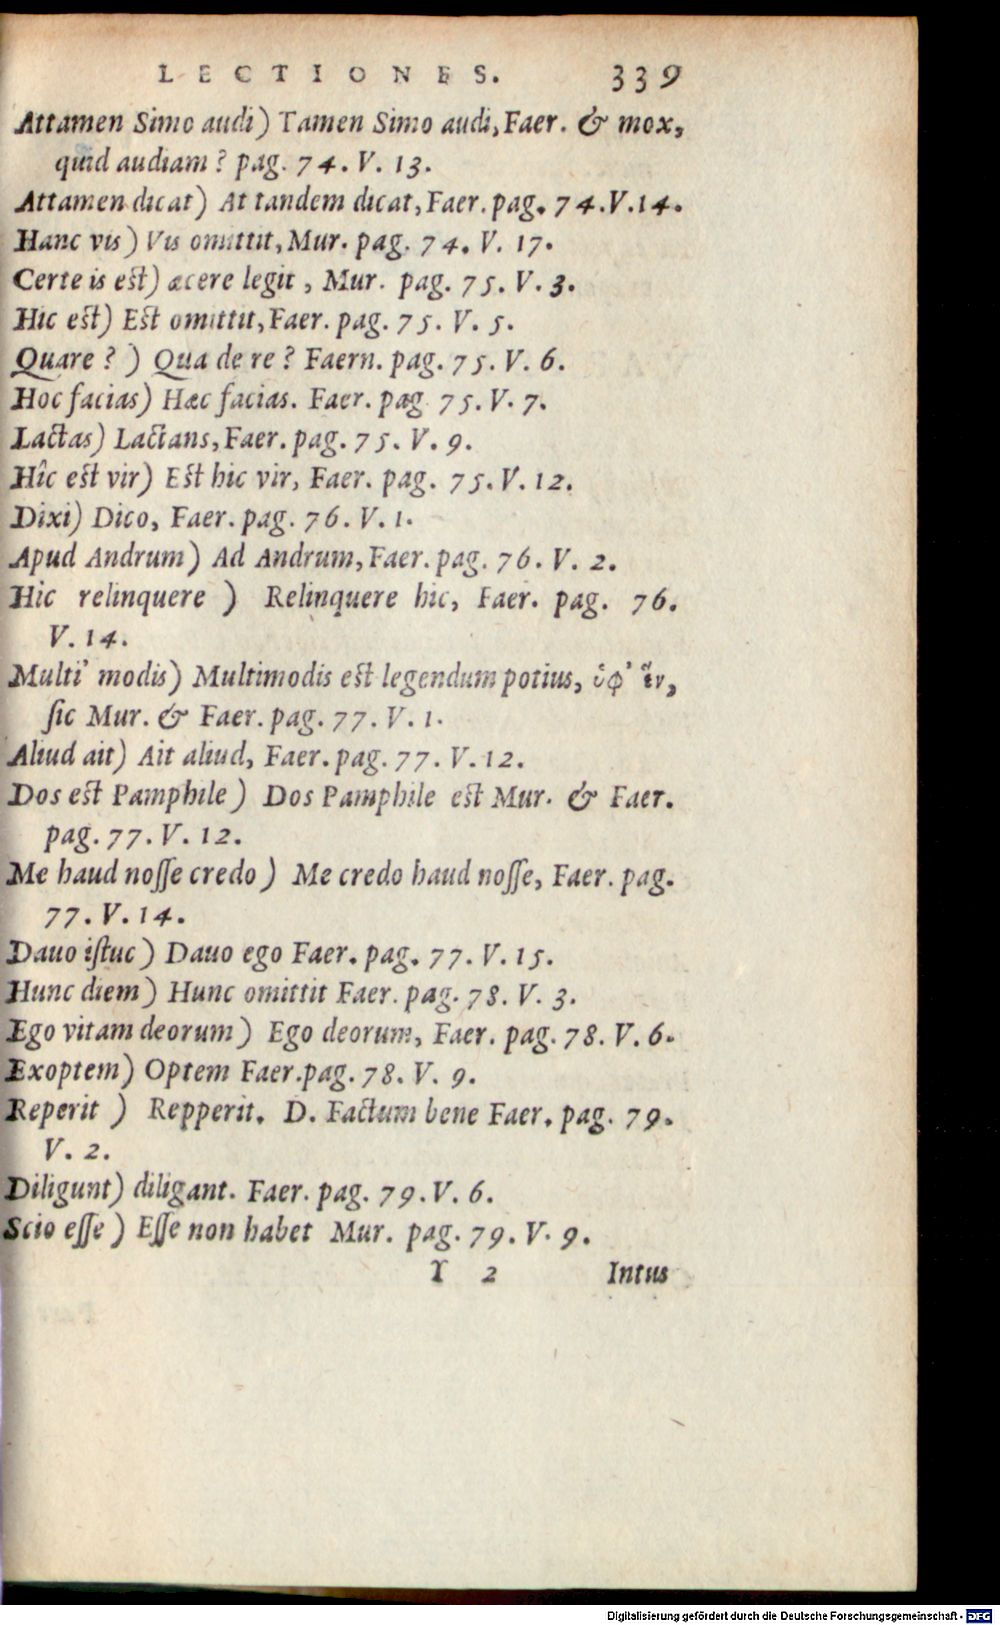 LECTIONES. 339
Attamen Simo audi) Tamen Simo audi, Faer. & mox,
quid audiam? pag. 74. V. 13.
Attamen dicat) At tandem dicat, Faer. pag. 74. V. 14.
Hanc vis) Vis omittit, Mur. pag. 74. V. 17.
Certe is est) æcere legit, Mur. pag. 75. V. 3.
Hic est) Est omittit, Faer. pag. 75. V. 5.
Quare?) Qua de re? Faern. pag. 75. V. 6.
Hoc facias) Hæc facias. Faer. pag 75. V. 7.
Lactas) Lactans, Faer. pag. 75. V. 9.
Hîc est vir) Est hic vir, Faer. pag. 75. V. 12.
Dixi) Dico, Faer. pag. 76. V. 1.
Apud Andrum) Ad Andrum, Faer. pag. 76. V. 2.
Hic relinquere) Relinquere hic, Faer. pag. 76.
V. 14.
Multi' modis) Multimodis est legendum potius, ὑφ' ἓν,
ſic Mur. & Faer. pag. 77. V. 1.
Aliud ait) Ait aliud, Faer. pag. 77. V. 12.
Dos est Pamphile) Dos Pamphile est Mur. & Faer.
pag. 77. V. 12.
Me haud noſſe credo) Me credo haud noſſe, Faer. pag.
77. V. 14.
Dauo iſtuc) Dauo ego Faer. pag. 77. V. 15.
Hunc diem) Hunc omittit Faer. pag. 78. V. 3.
Ego vitam deorum) Ego deorum, Faer. pag. 78. V. 6.
Exoptem) Optem Faer. pag. 78. V. 9.
Reperit) Repperit. D. Factum bene Faer. pag. 79.
V. 2.
Diligunt) diligant. Faer. pag. 79. V. 6.
Scio eſſe) Eſſe non habet Mur. pag. 79. V. 9.
Y 2 Intus
Digitalisierung gefördert durch die Deutsche Forschungsgemeinschaft - DFG